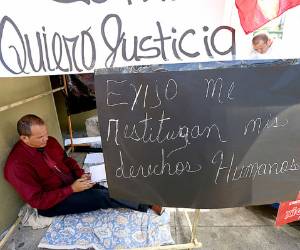 Quiero Justicia
EXIJO Me
Restituyan mis
derechos Humanos